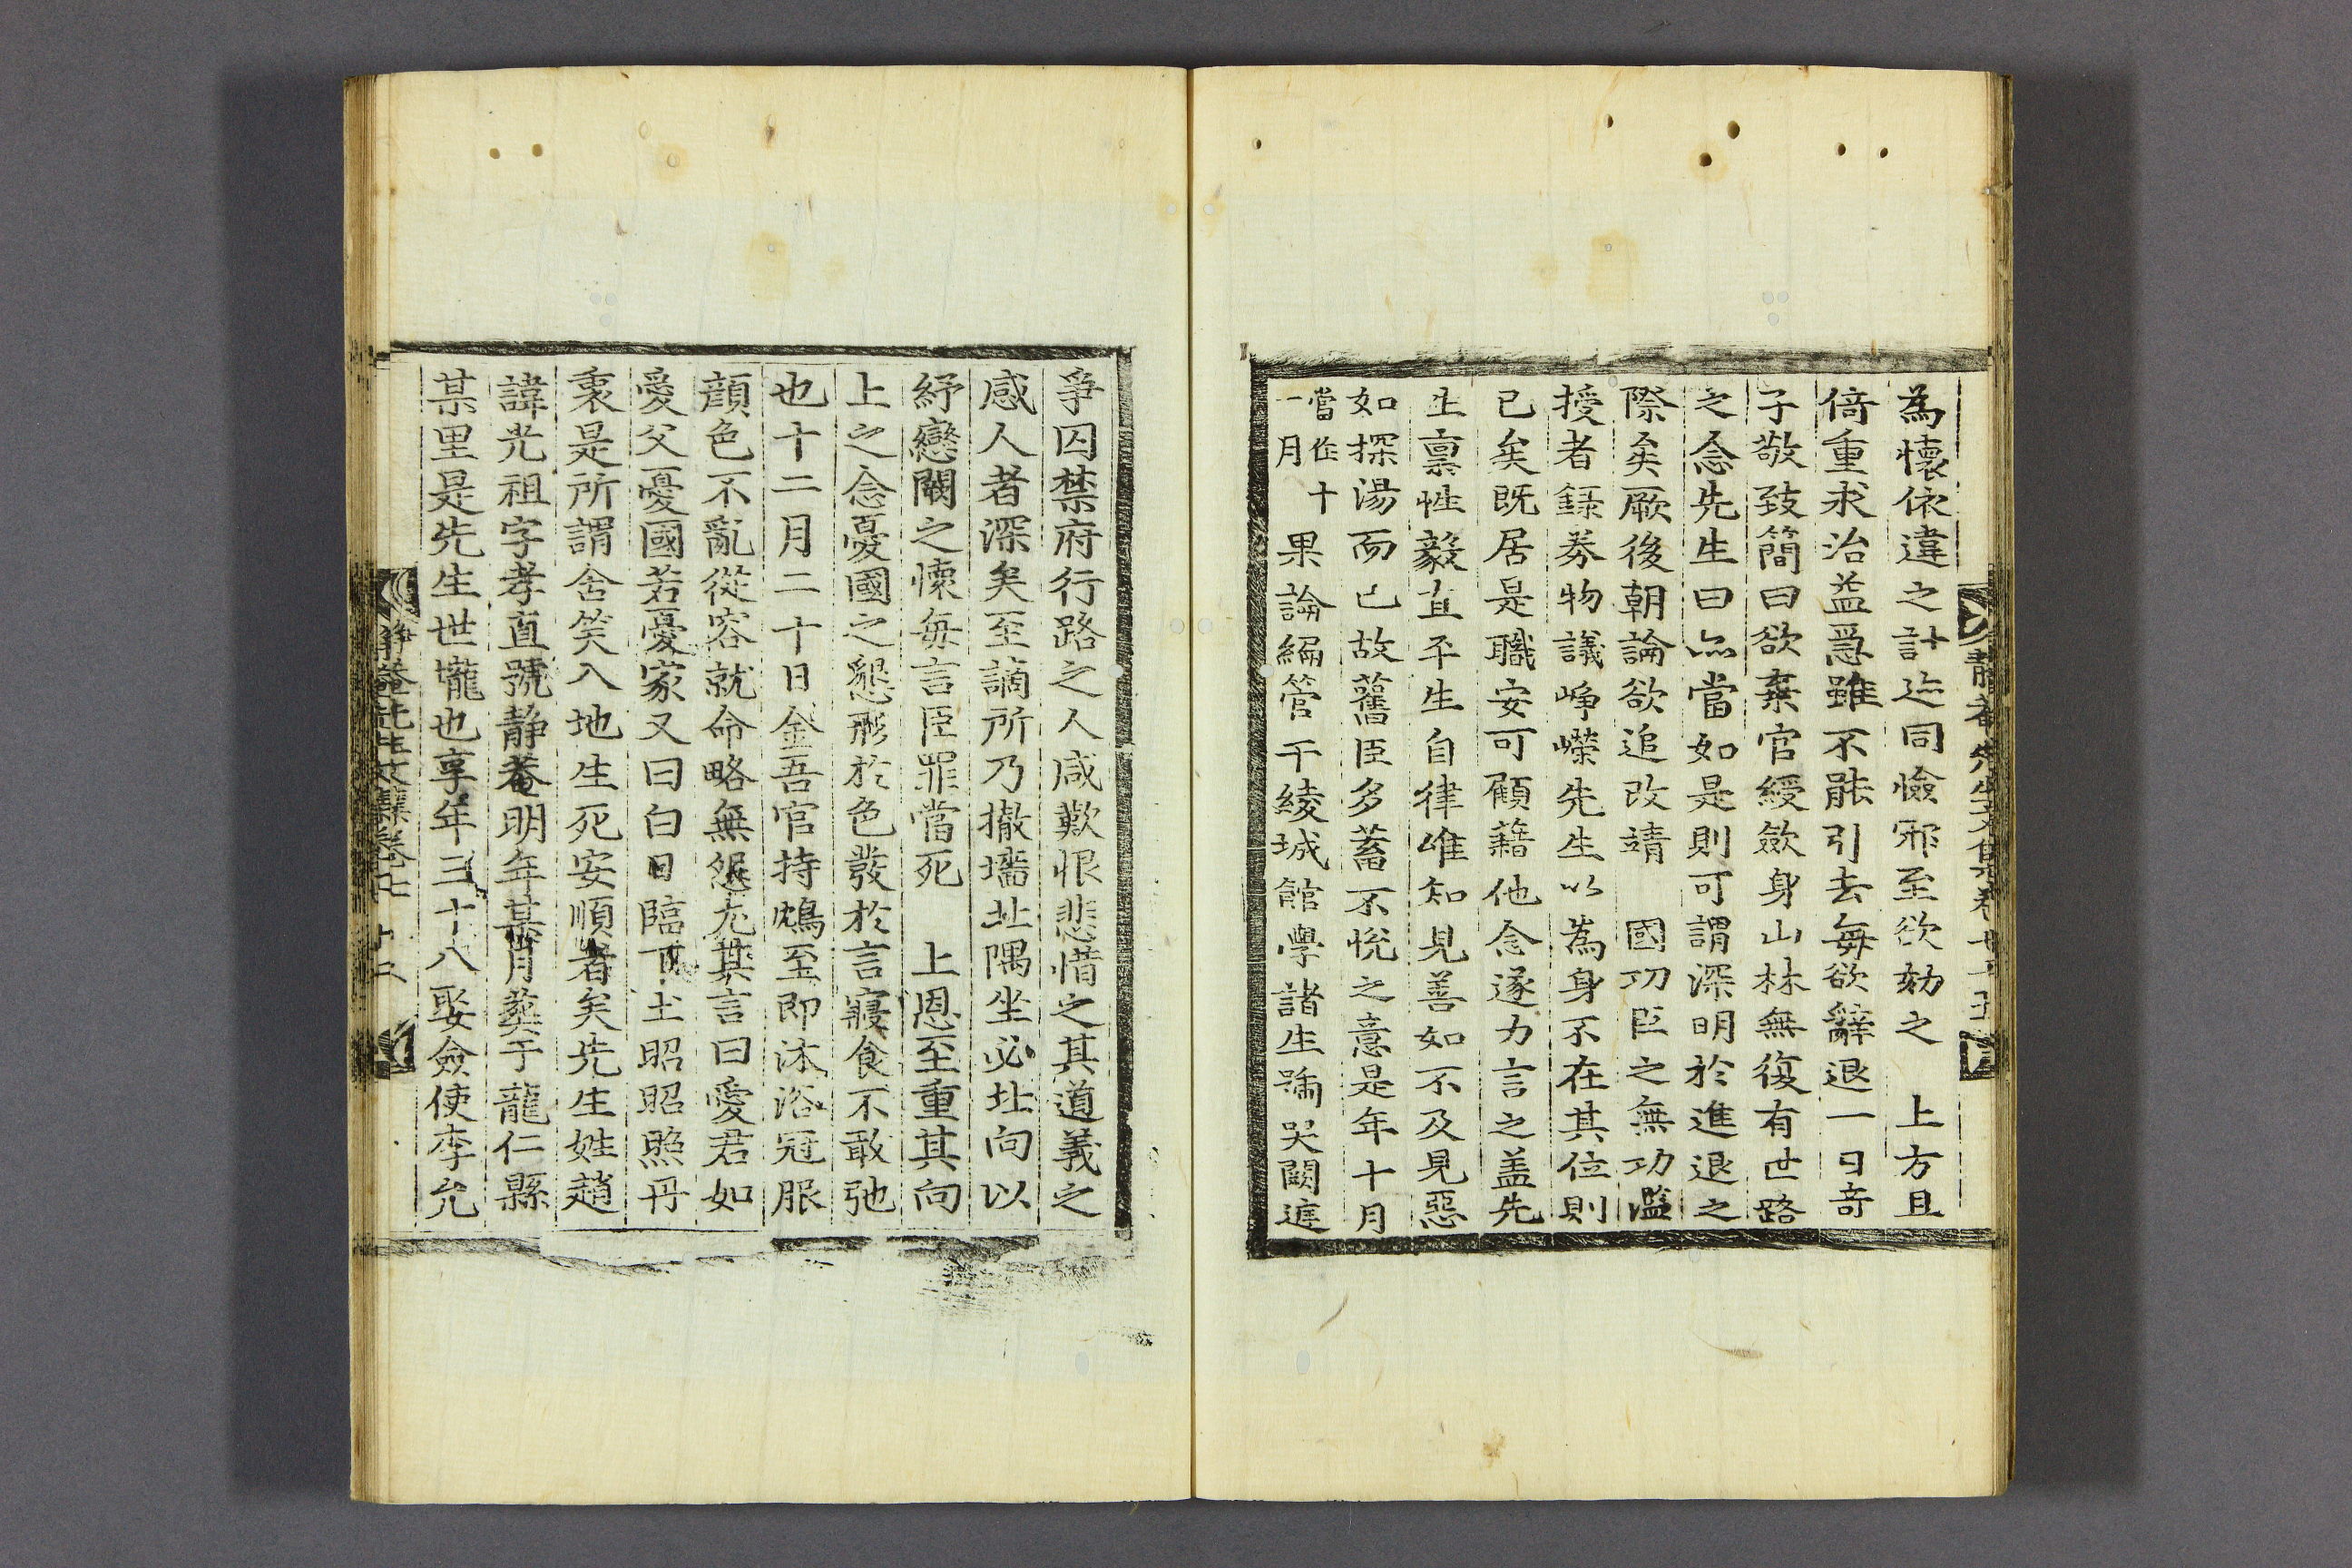 為懷依違之計迹同憸邪至欲劾之　上方且
倚重求治益急雖不能引去每欲辭退一日奇
子敬致簡曰欲棄官綬斂身山林無復有世路
之念先生曰亦當如是則可謂深明於進退之
際矣厥後朝論欲追改靖　國功臣之無功濫
授者錄券物議崢嶸先生以為身不在其位則
已矣既居是職安可顧藉他念遂力言之盖先
生禀性毅直平生自律唯知見善如不及見惡
如探湯而已故舊臣多蓄不悅之意是年十月
當作十
一月
果論編管于綾城館學諸生號哭闕庭
靜菴先生文集卷
爭囚禁府行路之人咸歎恨悲惜之其道義之
感人者深矣至謫所乃撤墻北隅坐必北向以
紓戀闕之懷每言臣罪當死　上恩至重其向
上之念憂國之懇形於色發於言寢食不敢弛
也十二月二十日金吾官持鴆至即沐浴冠服
顔色不亂從容就命略無怨尤其言曰愛君如
愛父憂國若憂家又曰白日臨下土昭昭照丹
衷是所謂含笑入地生死安順者矣先生姓趙
諱光祖字孝直號静菴明年某月葬于龍仁縣
某里是先生世壠也享年三十八娶僉使李允
靜菴先生文集卷